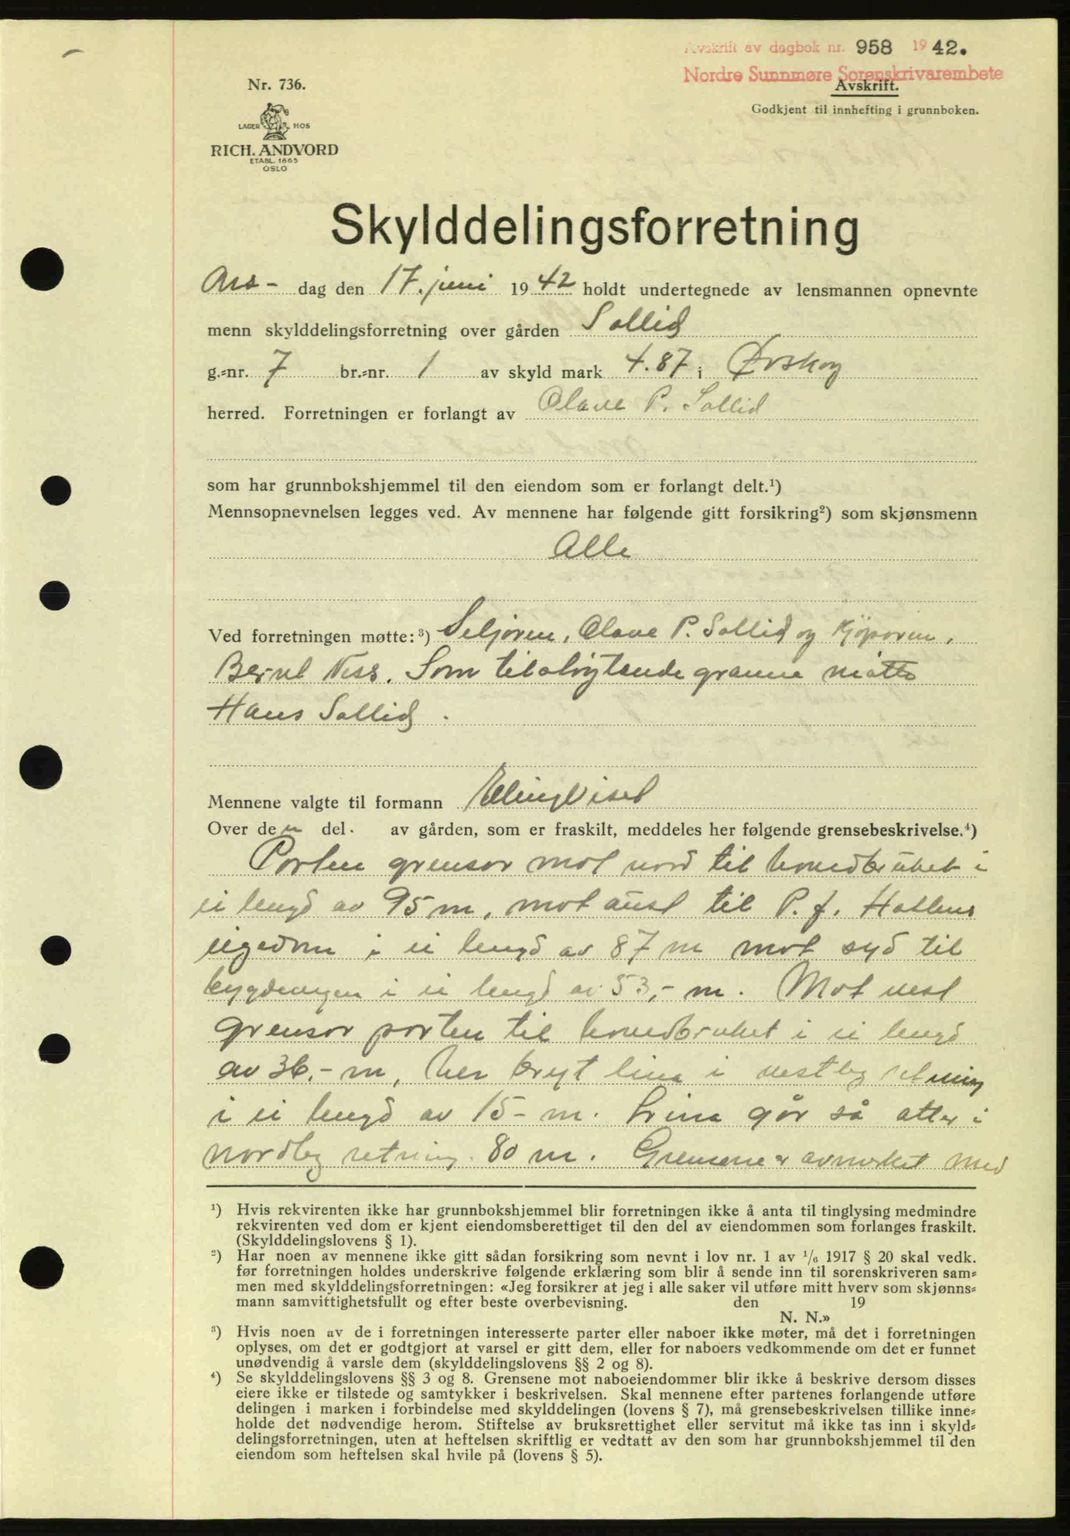 Avskrift av dagbok nr. 958 1942.
Nordre Sunnmøre Sorenskrivarembete
Nr. 736.
Avskrift.
Godkjent til innhefting i grunnboken.
LAGER HOS
RICH. ANDVORD
ETABL. 1865
OSLO
Skylddelingsforretning
Ons- dag den 17. juni 1942 holdt undertegnede av lensmannen opnevnte
menn skylddelingsforretning over gården Sollid
g.=nr. 7 br.=nr. 1 av skyld mark 4.87 i Ørskog
herred. Forretningen er forlangt av Olave P. Sollid
som har grunnbokshjemmel til den eiendom som er forlangt delt.¹)
Mennsopnevnelsen legges ved. Av mennene har følgende gitt forsikring²) som skjønsmenn
Alle
Ved forretningen møtte:³) Seljaren, Olave P. Sollid og kjøparen,
Bernt Ness. Som tilstøytande granne møtte
Hans Sollid.
Mennene valgte til formann
Over den del av gården, som er fraskilt, meddeles her følgende grensebeskrivelse.⁴)
Porten grensor mot nord til hovedbruket i
ei lengd av 95 m, mot aust til P. J. Hatlens
eigedom i ei lengd av 87 m mot syd til
bygdevegen i ei lengd av 53,- m. Mot vest
grensor porten til hovedbruket i ei lengd
av 36,- m, her bryt lina i vestleg retning
i ei lengd av 15- m. Lina går så atter i
nordleg retning 80 m. Grensene er avmerket med
¹) Hvis rekvirenten ikke har grunnbokshjemmel blir forretningen ikke å anta til tinglysing medmindre
rekvirenten ved dom er kjent eiendomsberettiget til den del av eiendommen som forlanges fraskilt.
(Skylddelingslovens § 1).
²) Har noen av mennene ikke gitt sådan forsikring som nevnt i lov nr. 1 av ¹/₆ 1917 § 20 skal vedk.
før forretningen holdes underskrive følgende erklæring som blir å sende inn til sorenskriveren sam=
men med skylddelingsforretningen: «Jeg forsikrer at jeg i alle saker vil utføre mitt hverv som skjønns=
mann samvittighetsfullt og efter beste overbevisning. den 19
N. N.»
³) Hvis noen av de i forretningen interesserte parter eller naboer ikke møter, må det i forretningen
oplyses, om det er godtgjort at varsel er gitt dem, eller for naboers vedkommende om det er funnet
unødvendig å varsle dem (skylddelingslovens §§ 2 og 8).
⁴) Se skylddelingslovens §§ 3 og 8. Grensene mot naboeiendommer blir ikke å beskrive dersom disses
eiere ikke er tilstede og samtykker i beskrivelsen. Skal mennene efter partenes forlangende utføre
delingen i marken i forbindelse med skylddelingen (lovens § 7), må grensebeskrivelsen tillike inne=
holde det nødvendige herom. Stiftelse av bruksrettighet eller servitut må ikke tas inn i skyld=
delingsforretningen, uten at heftelsen skriftlig er vedtatt av den som har grunnbokshjemmel til den
eiendom som heftelsen skal hvile på (lovens § 5).